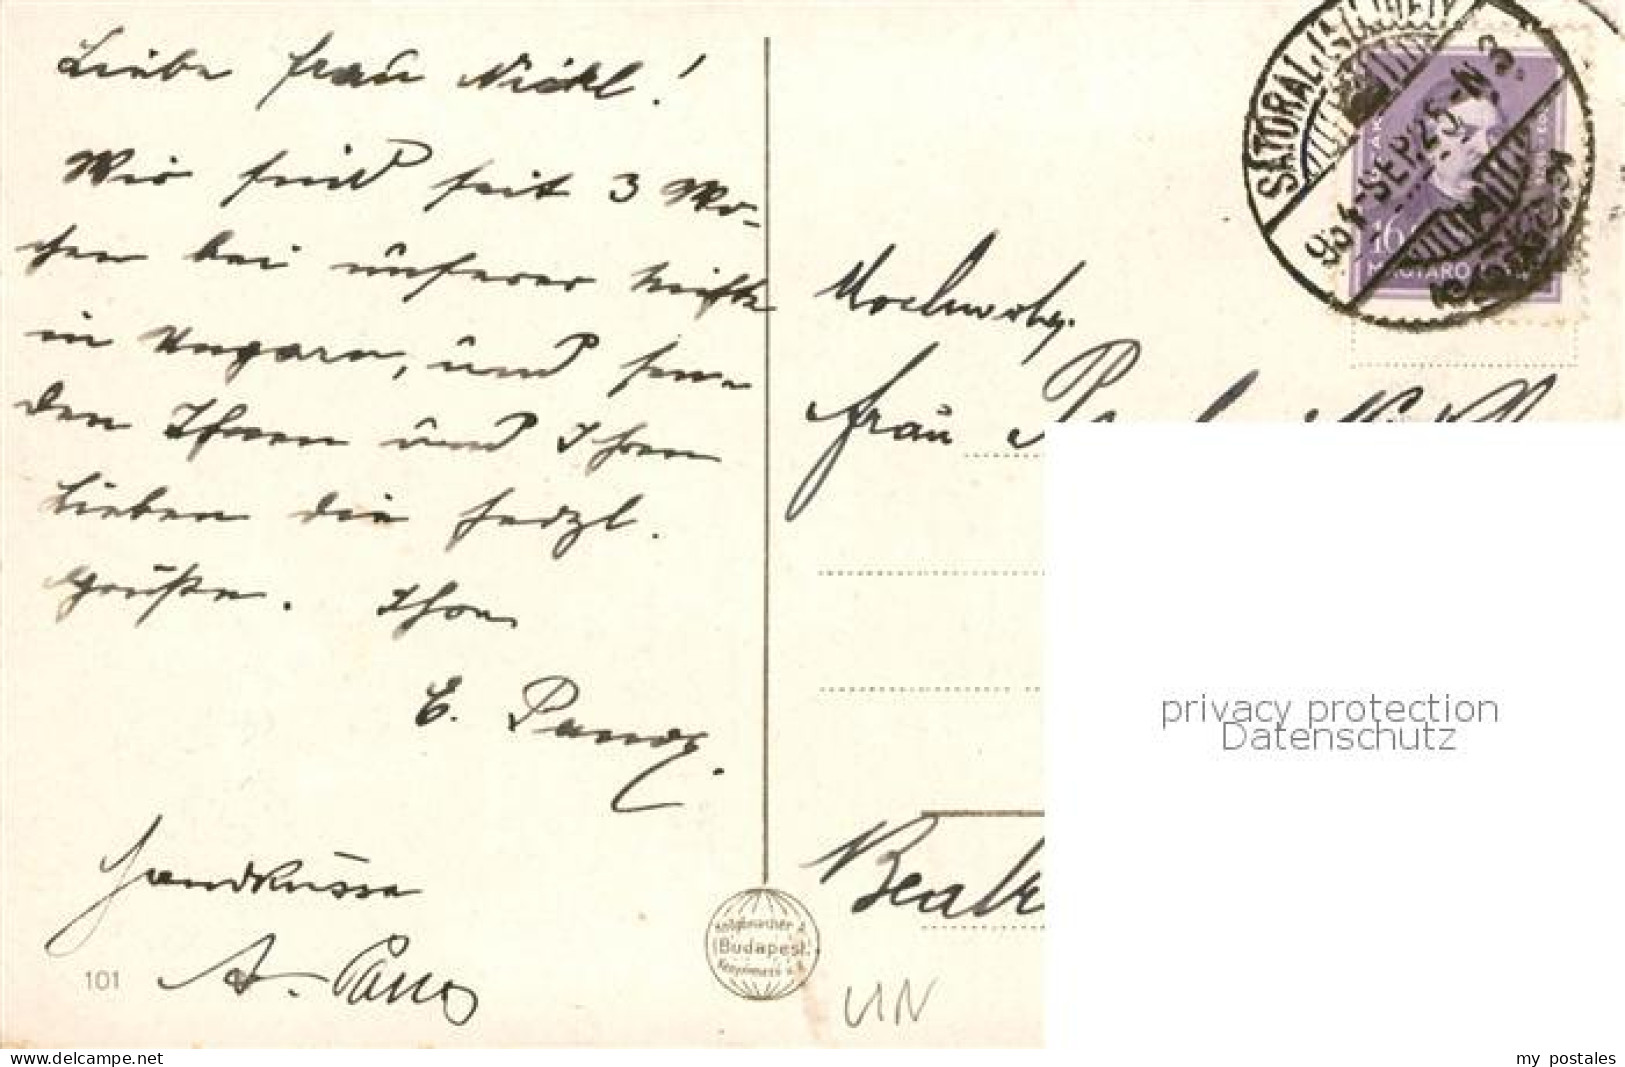 Liebe Frau Nickl!
Wir sind seit 3 Wo-
chen bei unserer Nichte
in Ungarn, und sen-
den Ihnen und Ihren
Lieben die herzl.
Grüße. Ihre
E.
Handküsse
A.
101
Hochwohlg.
Frau
SÁTORALJAÚJHELY
934-SEP.25.-N 3
16
MAGYARORSZÁG
Budapest.
UN
privacy protection
Datenschutz
www.delcampe.net
my_postales